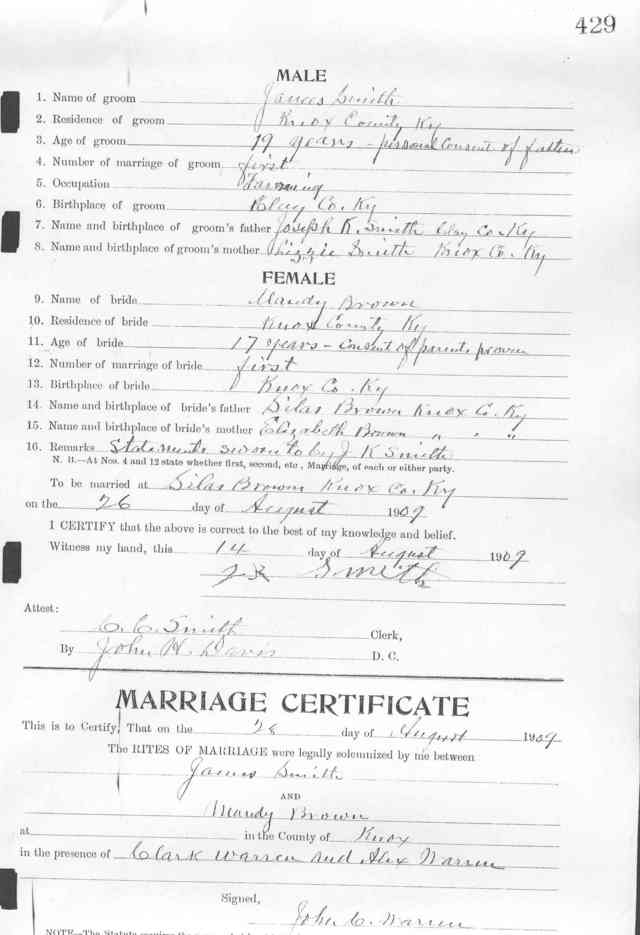 429
MALE
1. Name of groom James Smith
2. Residence of groom Knox County Ky
3. Age of groom 19 years – personal consent of father
4. Number of marriage of groom first
5. Occupation Farming
6. Birthplace of groom Clay Co. Ky
7. Name and birthplace of groom's father Joseph K. Smith Clay Co. Ky
8. Name and birthplace of groom's mother Lizzie Smith Knox Co. Ky
FEMALE
9. Name of bride Mandy Brown
10. Residence of bride Knox County Ky
11. Age of bride 17 years – consent of parents proven
12. Number of marriage of bride first
13. Birthplace of bride Knox Co. Ky
14. Name and birthplace of bride's father Silas Brown Knox Co. Ky
15. Name and birthplace of bride's mother Elizabeth Brown " " "
16. Remarks Statements sworn to by J K Smith
N. B.—At Nos. 4 and 12 state whether first, second, etc., Marriage, of each or either party.
To be married at Silas Brown Knox Co. Ky
on the 26 day of August 1909
I CERTIFY that the above is correct to the best of my knowledge and belief.
Witness my hand, this 14 day of August 1909
J K Smith
Attest:
C. C. Smith Clerk,
By John H. Davis D. C.
MARRIAGE CERTIFICATE
This is to Certify, That on the day of August 1909
The RITES OF MARRIAGE were legally solemnized by me between
James Smith
AND
Mandy Brown
at in the County of Knox
in the presence of Clark Warren and Alex Warren
Signed,
John C. Warren
NOTE—The Statute requires the